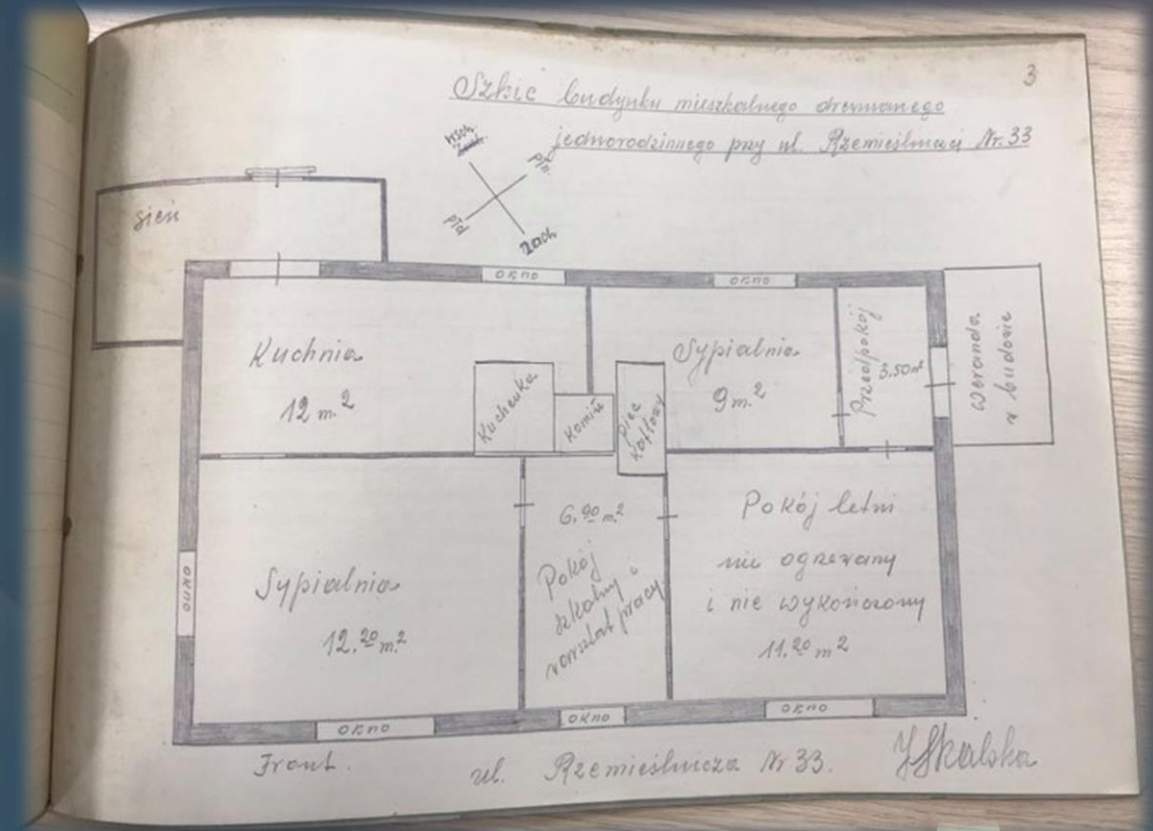 3
Szkic budynku mieszkalnego drewnianego
jednorodzinnego przy ul. Rzemieślniczej Nr. 33
Wsch.
Płn.
Płd
Zach.
sień
okno
okno
Kuchnia
12 m.²
Kuchenka
Komin
piec
kaflowy
Sypialnia
9 m.²
Przedpokój
3.50 m²
Weranda
w budowie
okno
Sypialnia
12.20 m.²
6.90 m.²
Pokój
szkolny i
warsztat pracy
Pokój letni
nie ogrzewany
i nie wykończony
11.20 m²
okno
okno
okno
Front.
ul. Rzemieślnicza Nr 33.
JSkalska